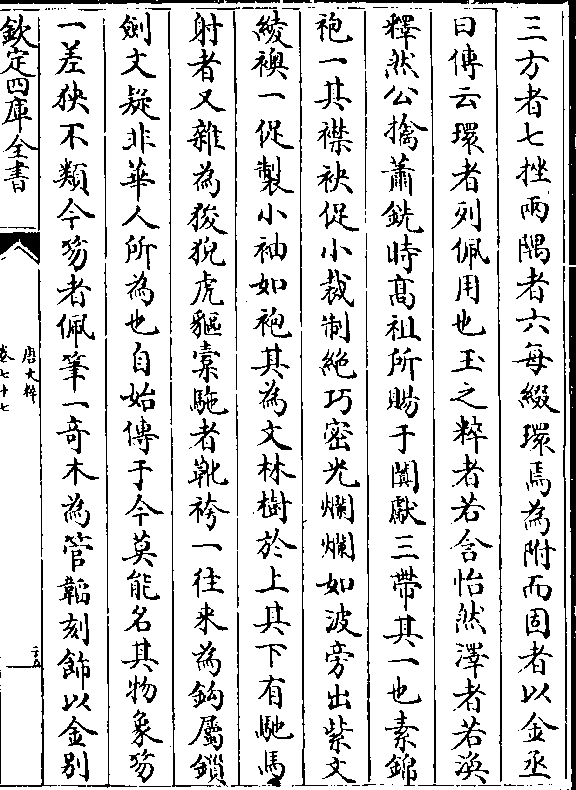 三方者七挫兩隅者六每綴環焉為附而固者以金丞
曰傳云環者列佩用也玉之粹者若含怡然澤者若渙
釋然公擒蕭銑時髙祖所賜于闐獻三帶其一也素錦
袍一其襟袂促小裁制絶巧密光爛爛如波旁出紫文
綾襖一促製小袖如袍其為文林樹於上其下有馳馬
射者又雜為狻猊虎貙橐駞者靴袴一往来為鈎屬鎖
劍文疑非華人所為也自始傳于今莫能名其物象笏
一差狹不類今笏者佩筆一奇木為管韜刻飾以金别
欽定四庫全書
唐文粹
卷七十七